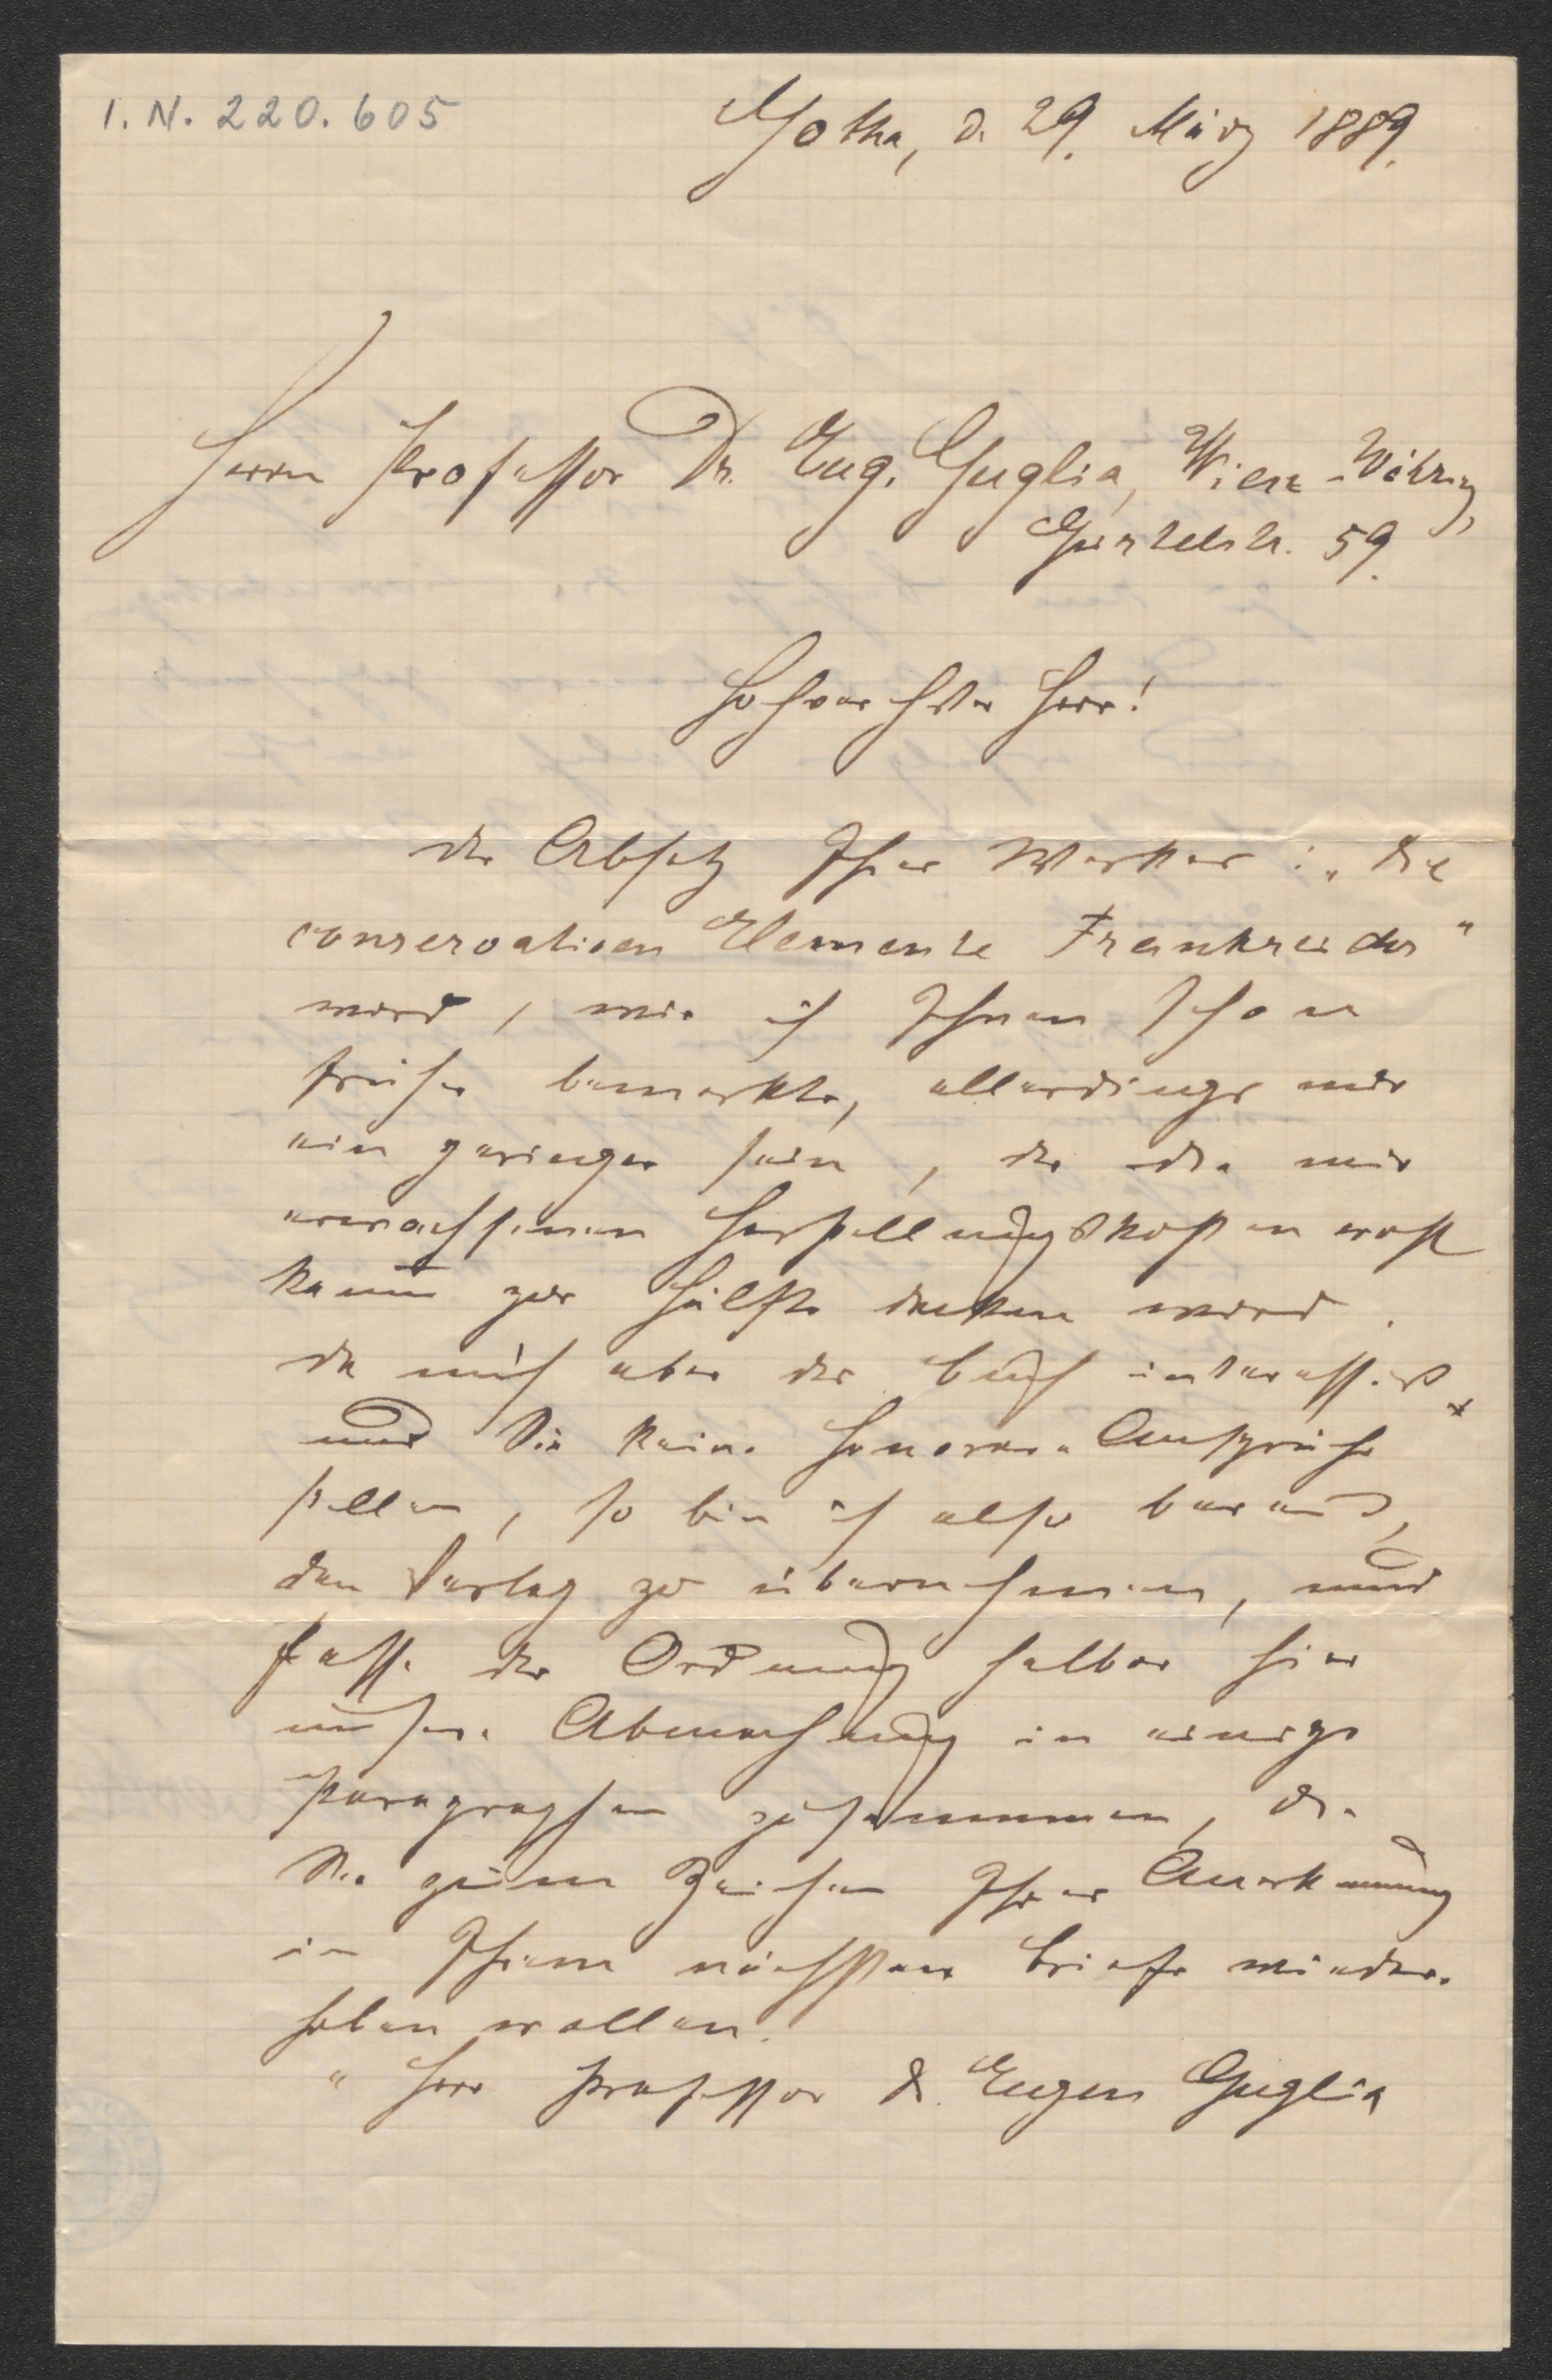 I. N. 220.605
Gotha, d. 29. März 1889.
Herrn Professor Dr. Eug. Guglia, Wien-Währing,
Gürtelstr. 59.
Hochverehrter Herr!
der Absatz Ihres Werkes: „die
conservativen Elemente Frankreichs"
wird, wie ich Ihnen schon
früher bemerkte, allerdings nur
ein geringer sein, der die mir
erwachsenen Herstellungskosten wohl
kaum zur Hälfte decken wird.
da mich aber das Buch interessirt
und Sie keine Honorar-Ansprüche
stellen, so bin ich also bereit,
den Verlag zu übernehmen, und
fasse der Ordnung halber hier
unsere Abmachung in einige
Paragraphen zusammen, die
Sie zum Zeichen Ihrer Anerkennung
in Ihrem nächsten Briefe wieder-
holen wollen.
" Herr Professor Dr. Eugen Guglia